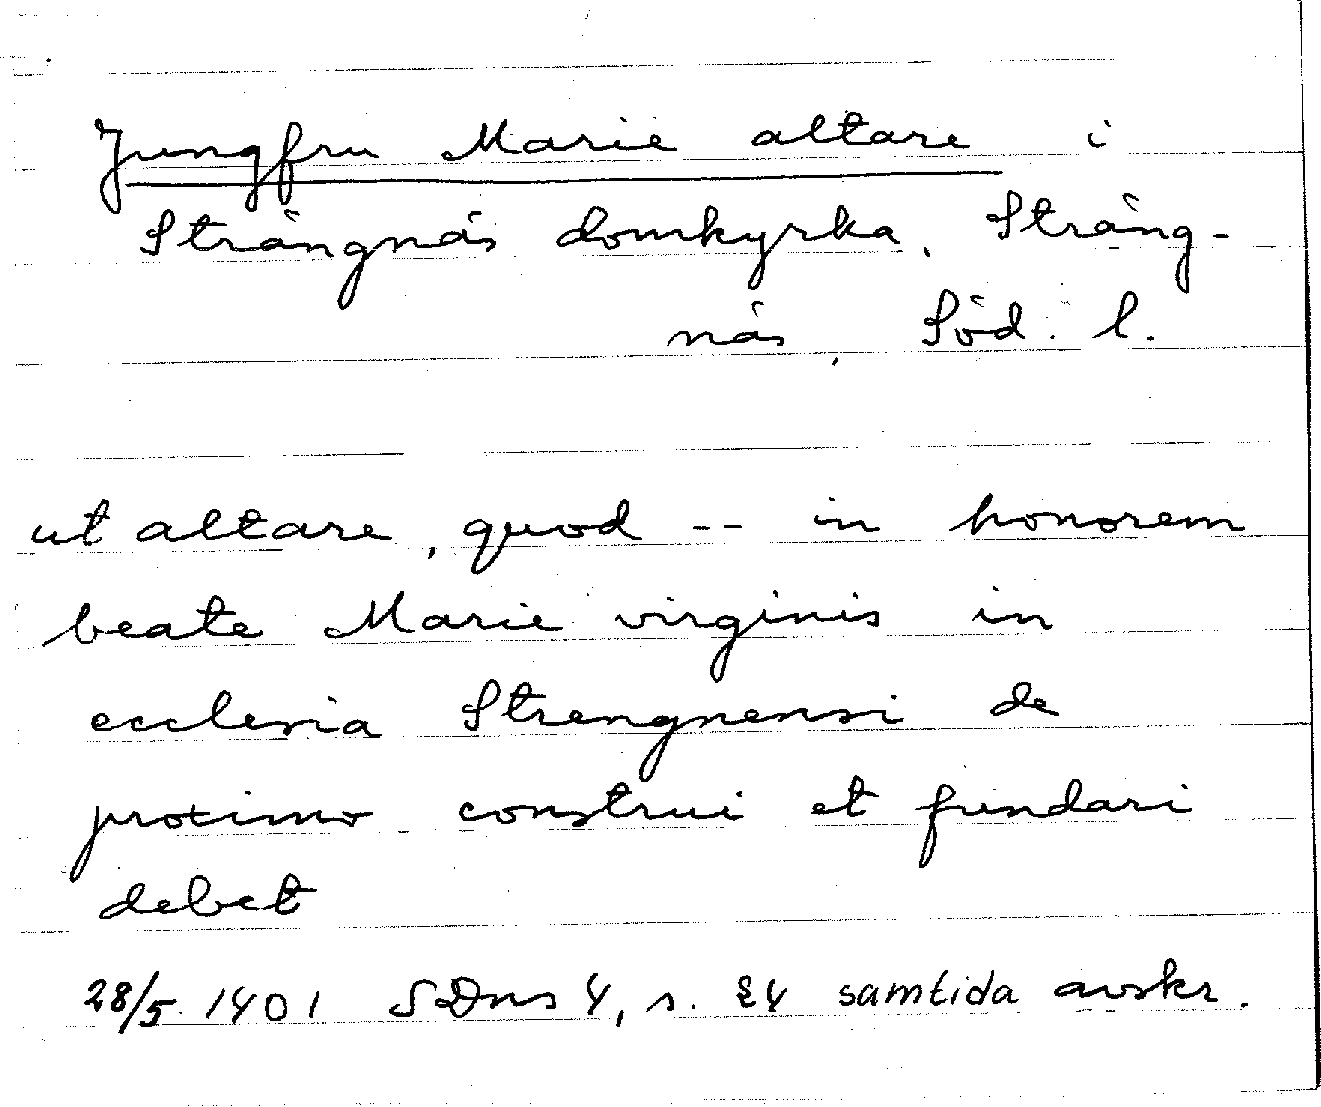 Jungfru Marie altare i
Strängnäs domkyrka, Sträng-
näs, Söd. l.
ut altare, quod -- in honorem
beate Marie virginis in
ecclesia Strengnensi de
proximo construi et fundari
debet
28/5 1401 SDns 4, s. 24 samtida avskr.